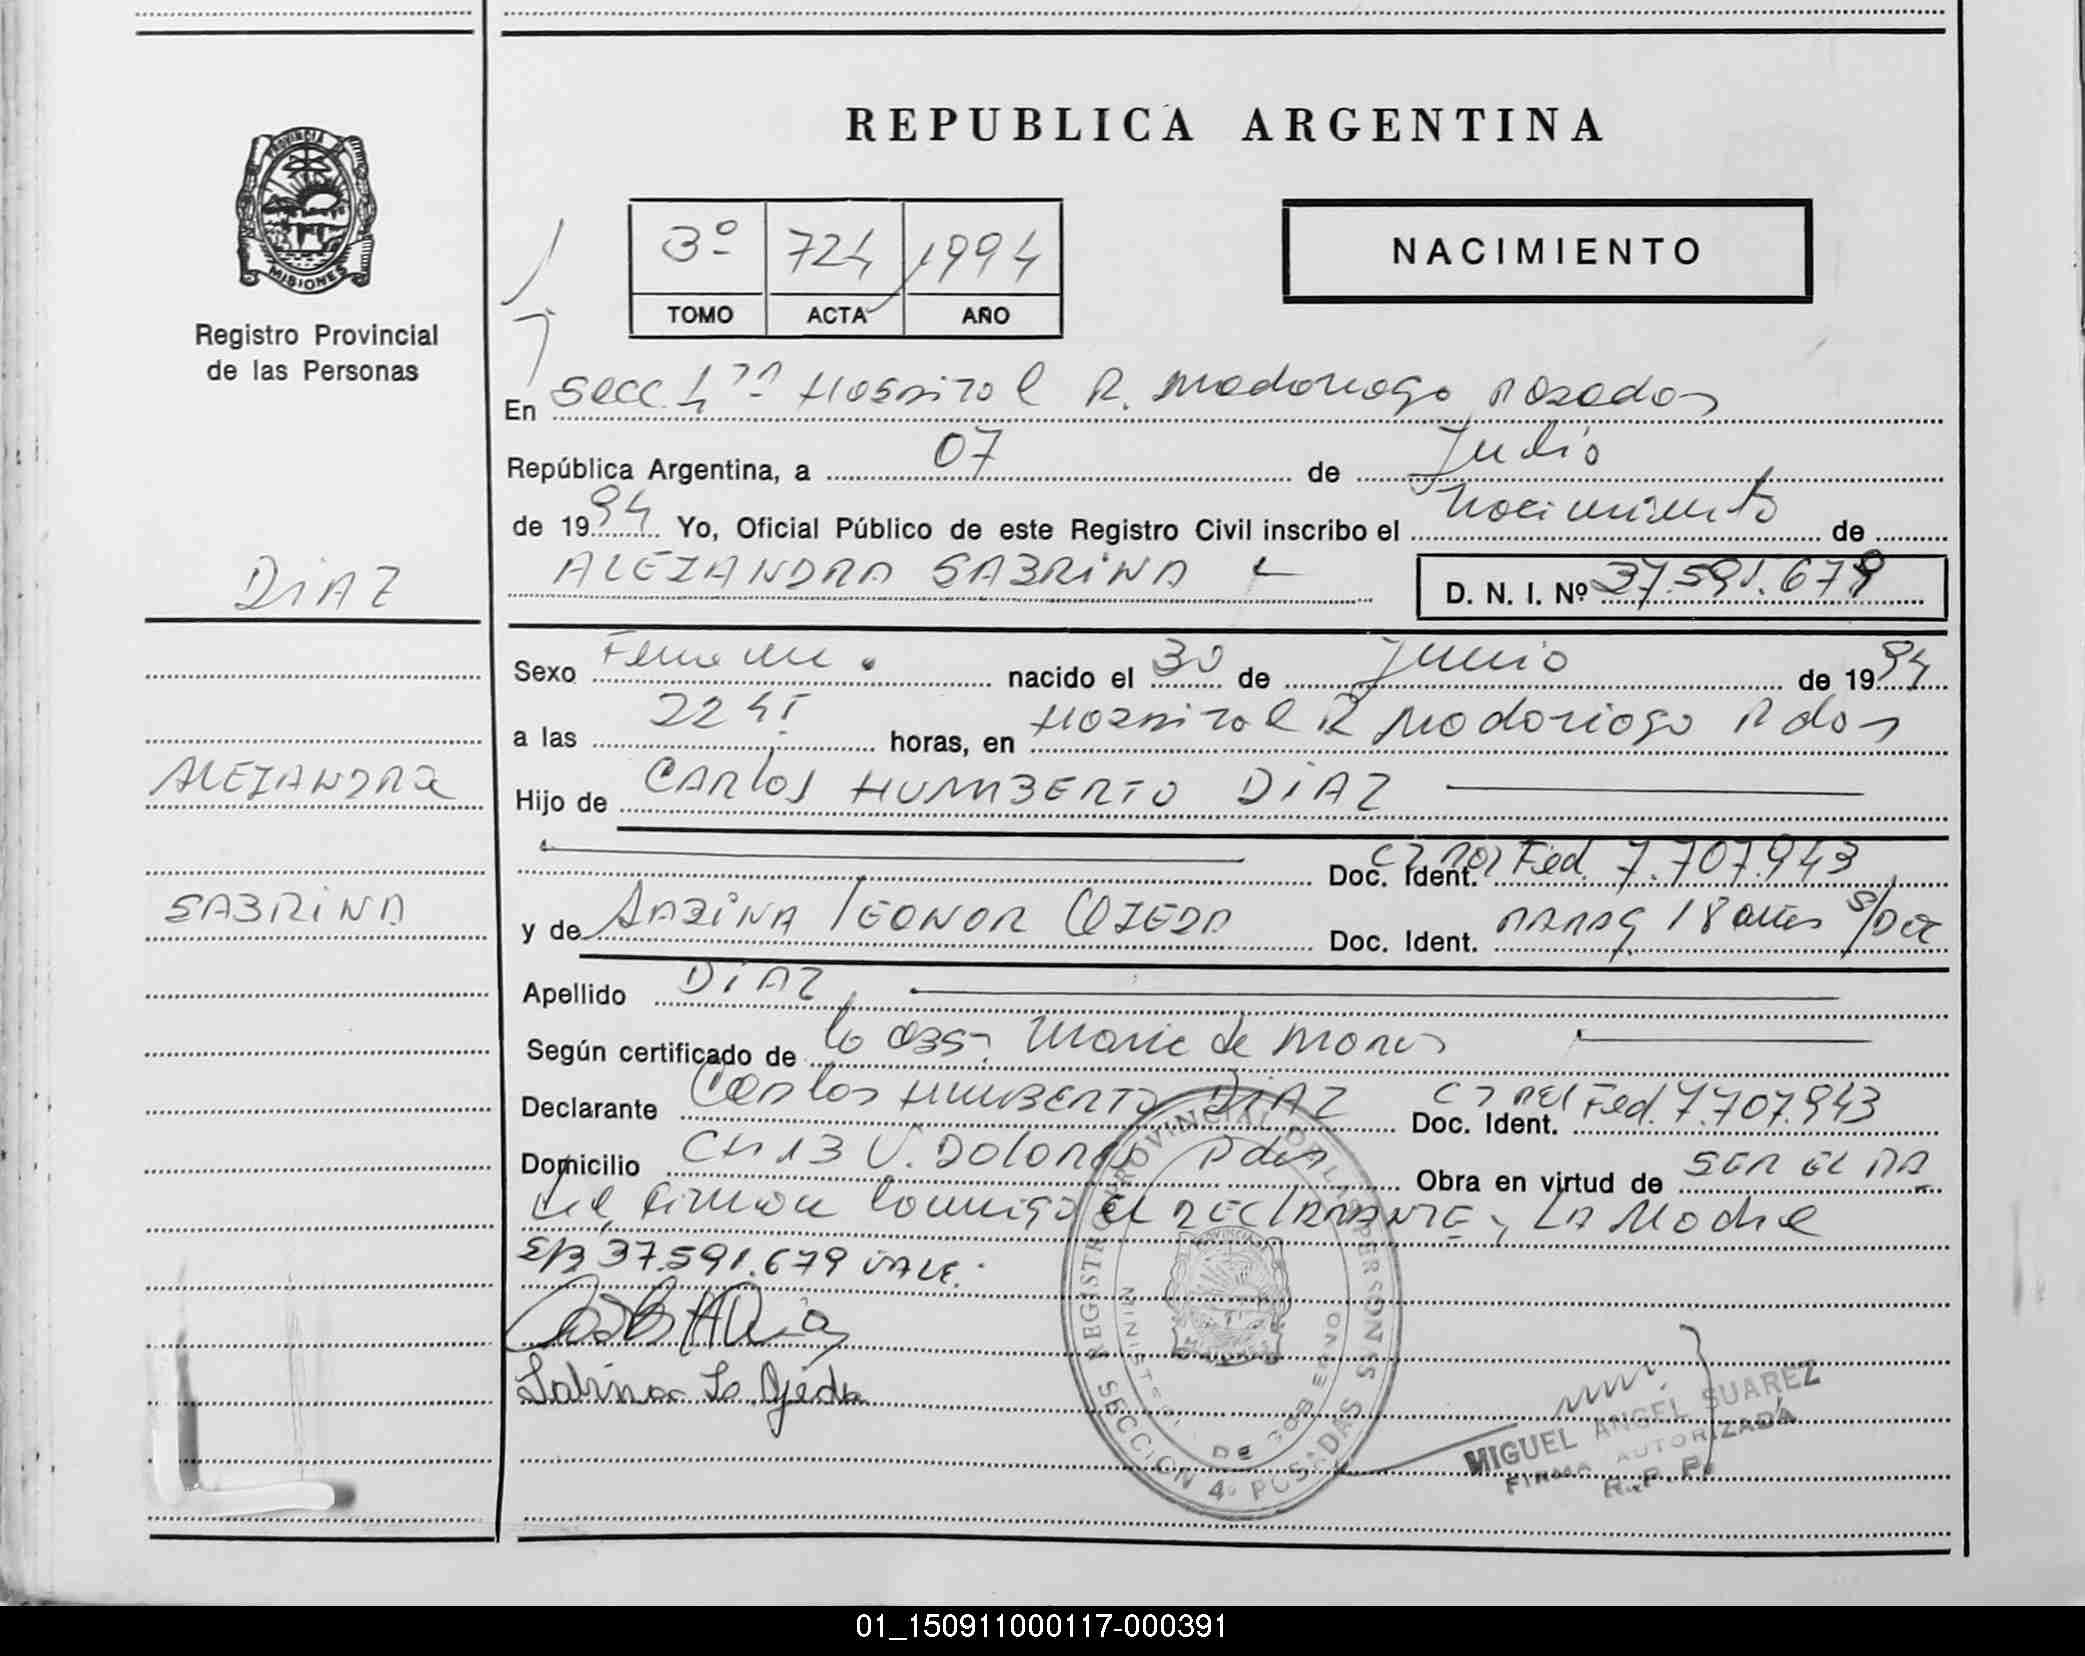 REPUBLICA ARGENTINA
PROVINCIA DE
MISIONES
Registro Provincial
de las Personas
3º 724 1994
TOMO ACTA AÑO
NACIMIENTO
En Secc. 4ta Hospital R. Madariaga Posadas
República Argentina, a 07 de Julio
de 1994 Yo, Oficial Público de este Registro Civil inscribo el Nacimiento de
ALEJANDRA SABRINA
D. N. I. Nº 37.591.679
DIAZ
ALEJANDRA
SABRINA
Sexo nacido el 30 de Junio de 1994
a las 22 45 horas, en Hospital R Madariaga Pdas
Hijo de CARLOS HUMBERTO DIAZ
Doc. Ident. Fed. 7.707.943
y de SABINA LEONOR OJEDA Doc. Ident. PARAG 18 años S/Doc
Apellido DIAZ
Según certificado de la obst.
Declarante Carlos HUMBERTO DIAZ Doc. Ident. Fed. 7.707.943
Domicilio CH 13 V. DOLORES Pdas Obra en virtud de SER EL PA
dre, firman conmigo el DECLARANTE y LA Madre
S/B 37.591.679 VALE.
Sabina L Ojeda
REGISTRO PROVINCIAL DE LAS PERSONAS
MINISTERIO DE GOBIERNO
SECCION 4º POSADAS
MIGUEL ANGEL SUAREZ
FIRMA AUTORIZADA
R. P. P.
01_150911000117-000391